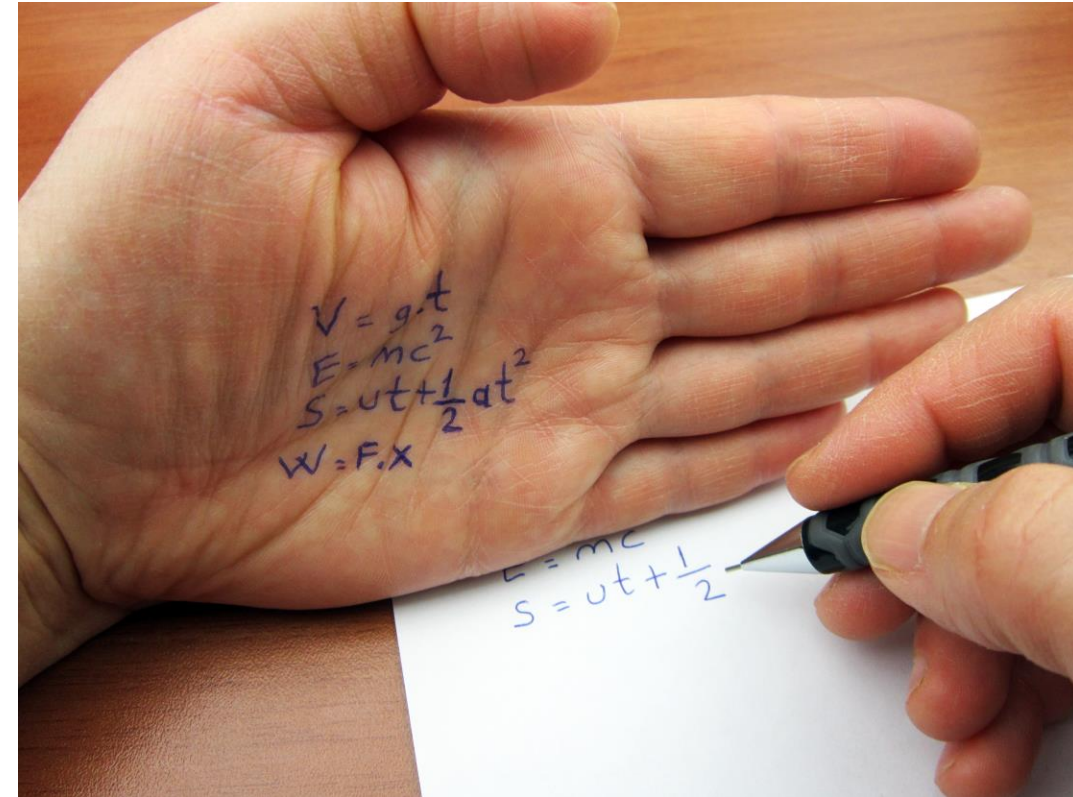 V = g.t
E = mc²
S = ut + 1/2 at²
W = F.X
E = mc
S = ut + 1/2